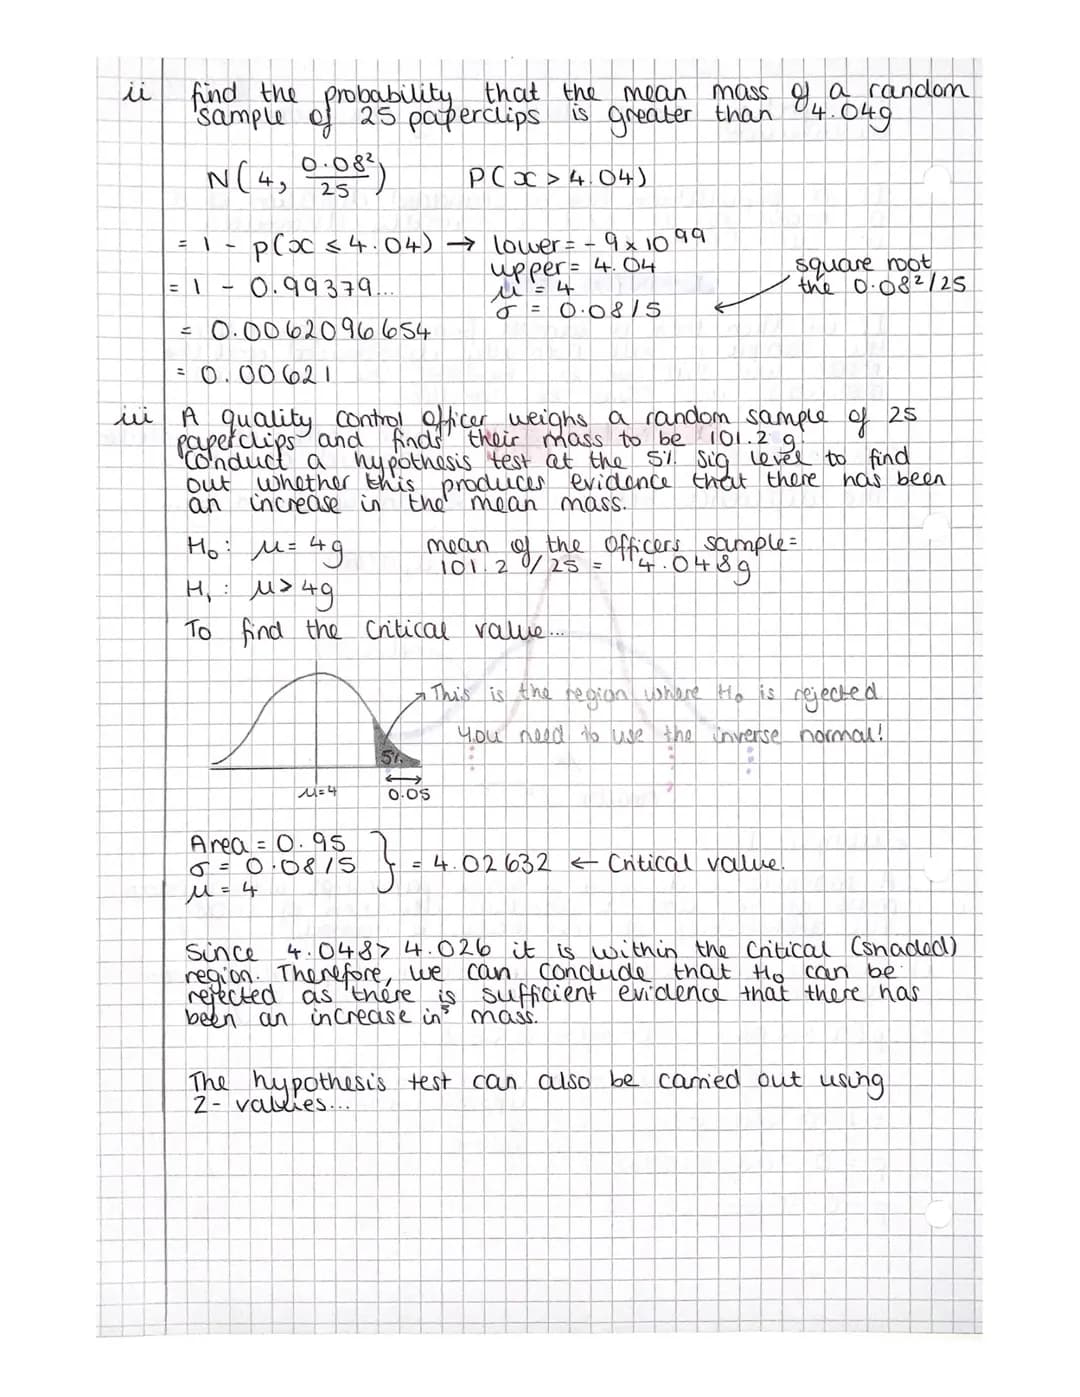 ii find the probability that the mean mass of a random
sample of 25 paperclips is greater than 4.04g
N(4, 0.08²/25) P(x > 4.04)
= 1 - p(x ≤ 4.04) → lower = - 9 x 10^99
upper = 4.04
square root
= 1 - 0.99379... μ = 4
the 0.08²/25
σ = 0.08/5 ←
= 0.0062096654
= 0.00621
iii A quality control officer weighs a random sample of 25
paperclips and finds their mass to be 101.2 g.
Conduct a hypothesis test at the 5% sig level to find
out whether this produces evidence that there has been
an increase in the mean mass.
H₀: μ = 4g mean of the officers sample =
101.2/25 = 4.048g
H₁: μ > 4g
To find the critical value...
This is the region where H₀ is rejected
You need to use the inverse normal!
5%
μ=4 0.05
Area = 0.95
σ = 0.08/5 } = 4.02632 ← Critical value.
μ = 4
Since 4.048 > 4.026 it is within the critical (shaded)
region. Therefore, we can conclude that H₀ can be
rejected as there is sufficient evidence that there has
been an increase in mass.
The hypothesis test can also be carried out using
z-values...